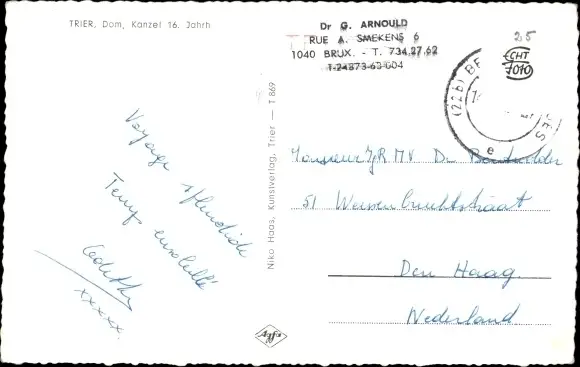 TRIER, Dom, Kanzel 16. Jahrh
Dr G. ARNOULD
RUE A. SMEKENS 6
1040 BRUX. - T. 734.27.62
25
CHT
7010
(22b) BE
e
Niko Haas, Kunstverlag, Trier — T 869
Voyage splendide
Temps ensoleillé
xxxxx.
Monsieur
51
Den Haag.
Nederland
Agfa